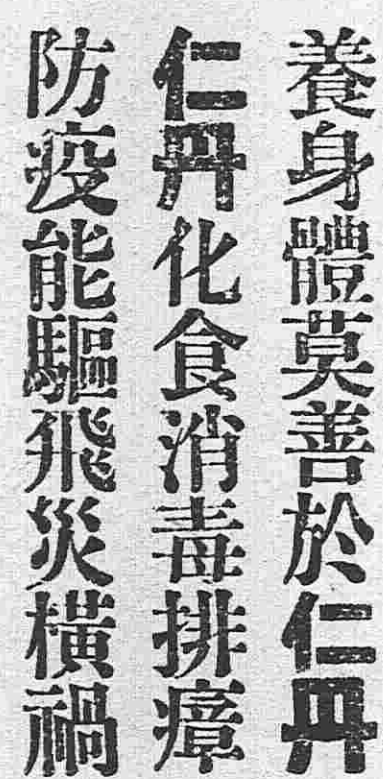 養身體莫善於仁丹
仁丹化食消毒排瘴
防疫能驅飛災橫禍